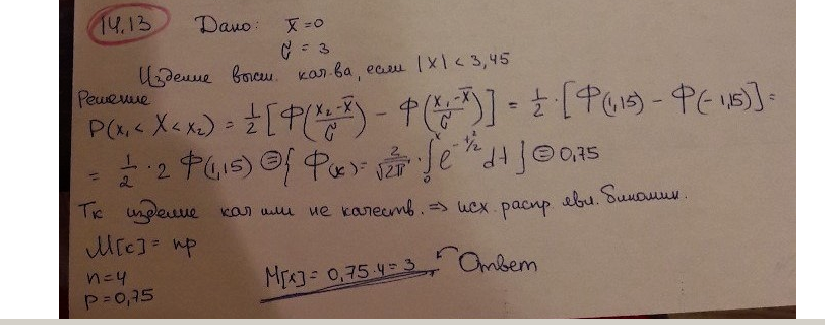 14.13 Дано: x̅ = 0
σ = 3
Изделие высш. кал-ва, если |X| < 3,45
Решение
P(x₁ < X < x₂) = 1/2 [Ф((x₂-x̅)/σ) - Ф((x₁-x̅)/σ)] = 1/2 · [Ф(1,15) - Ф(-1,15)] =
= 1/2 · 2 Ф(1,15) = { Ф(x) = 2/√2π · ∫₀ˣ e^(-t²/2) dt } = 0,75
Тк изделие кал или не качеств. => исх. распр явл. биномин.
M[x] = np
n = 4
p = 0,75
M[x] = 0,75·4 = 3 Ответ